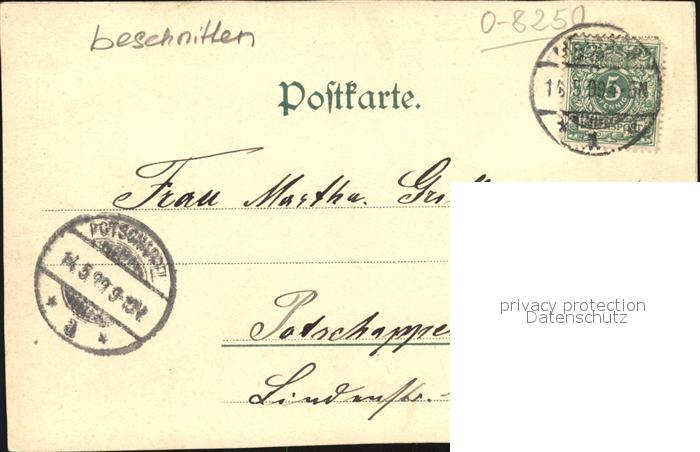 beschnitten
0-8250
14.5.99
5
PFENNIG
Postkarte.
Frau Martha
POTSCHAPPEL
14.5.99.9-10V.
* a *
privacy protection
Datenschutz
Potschappe
Lindenstr.